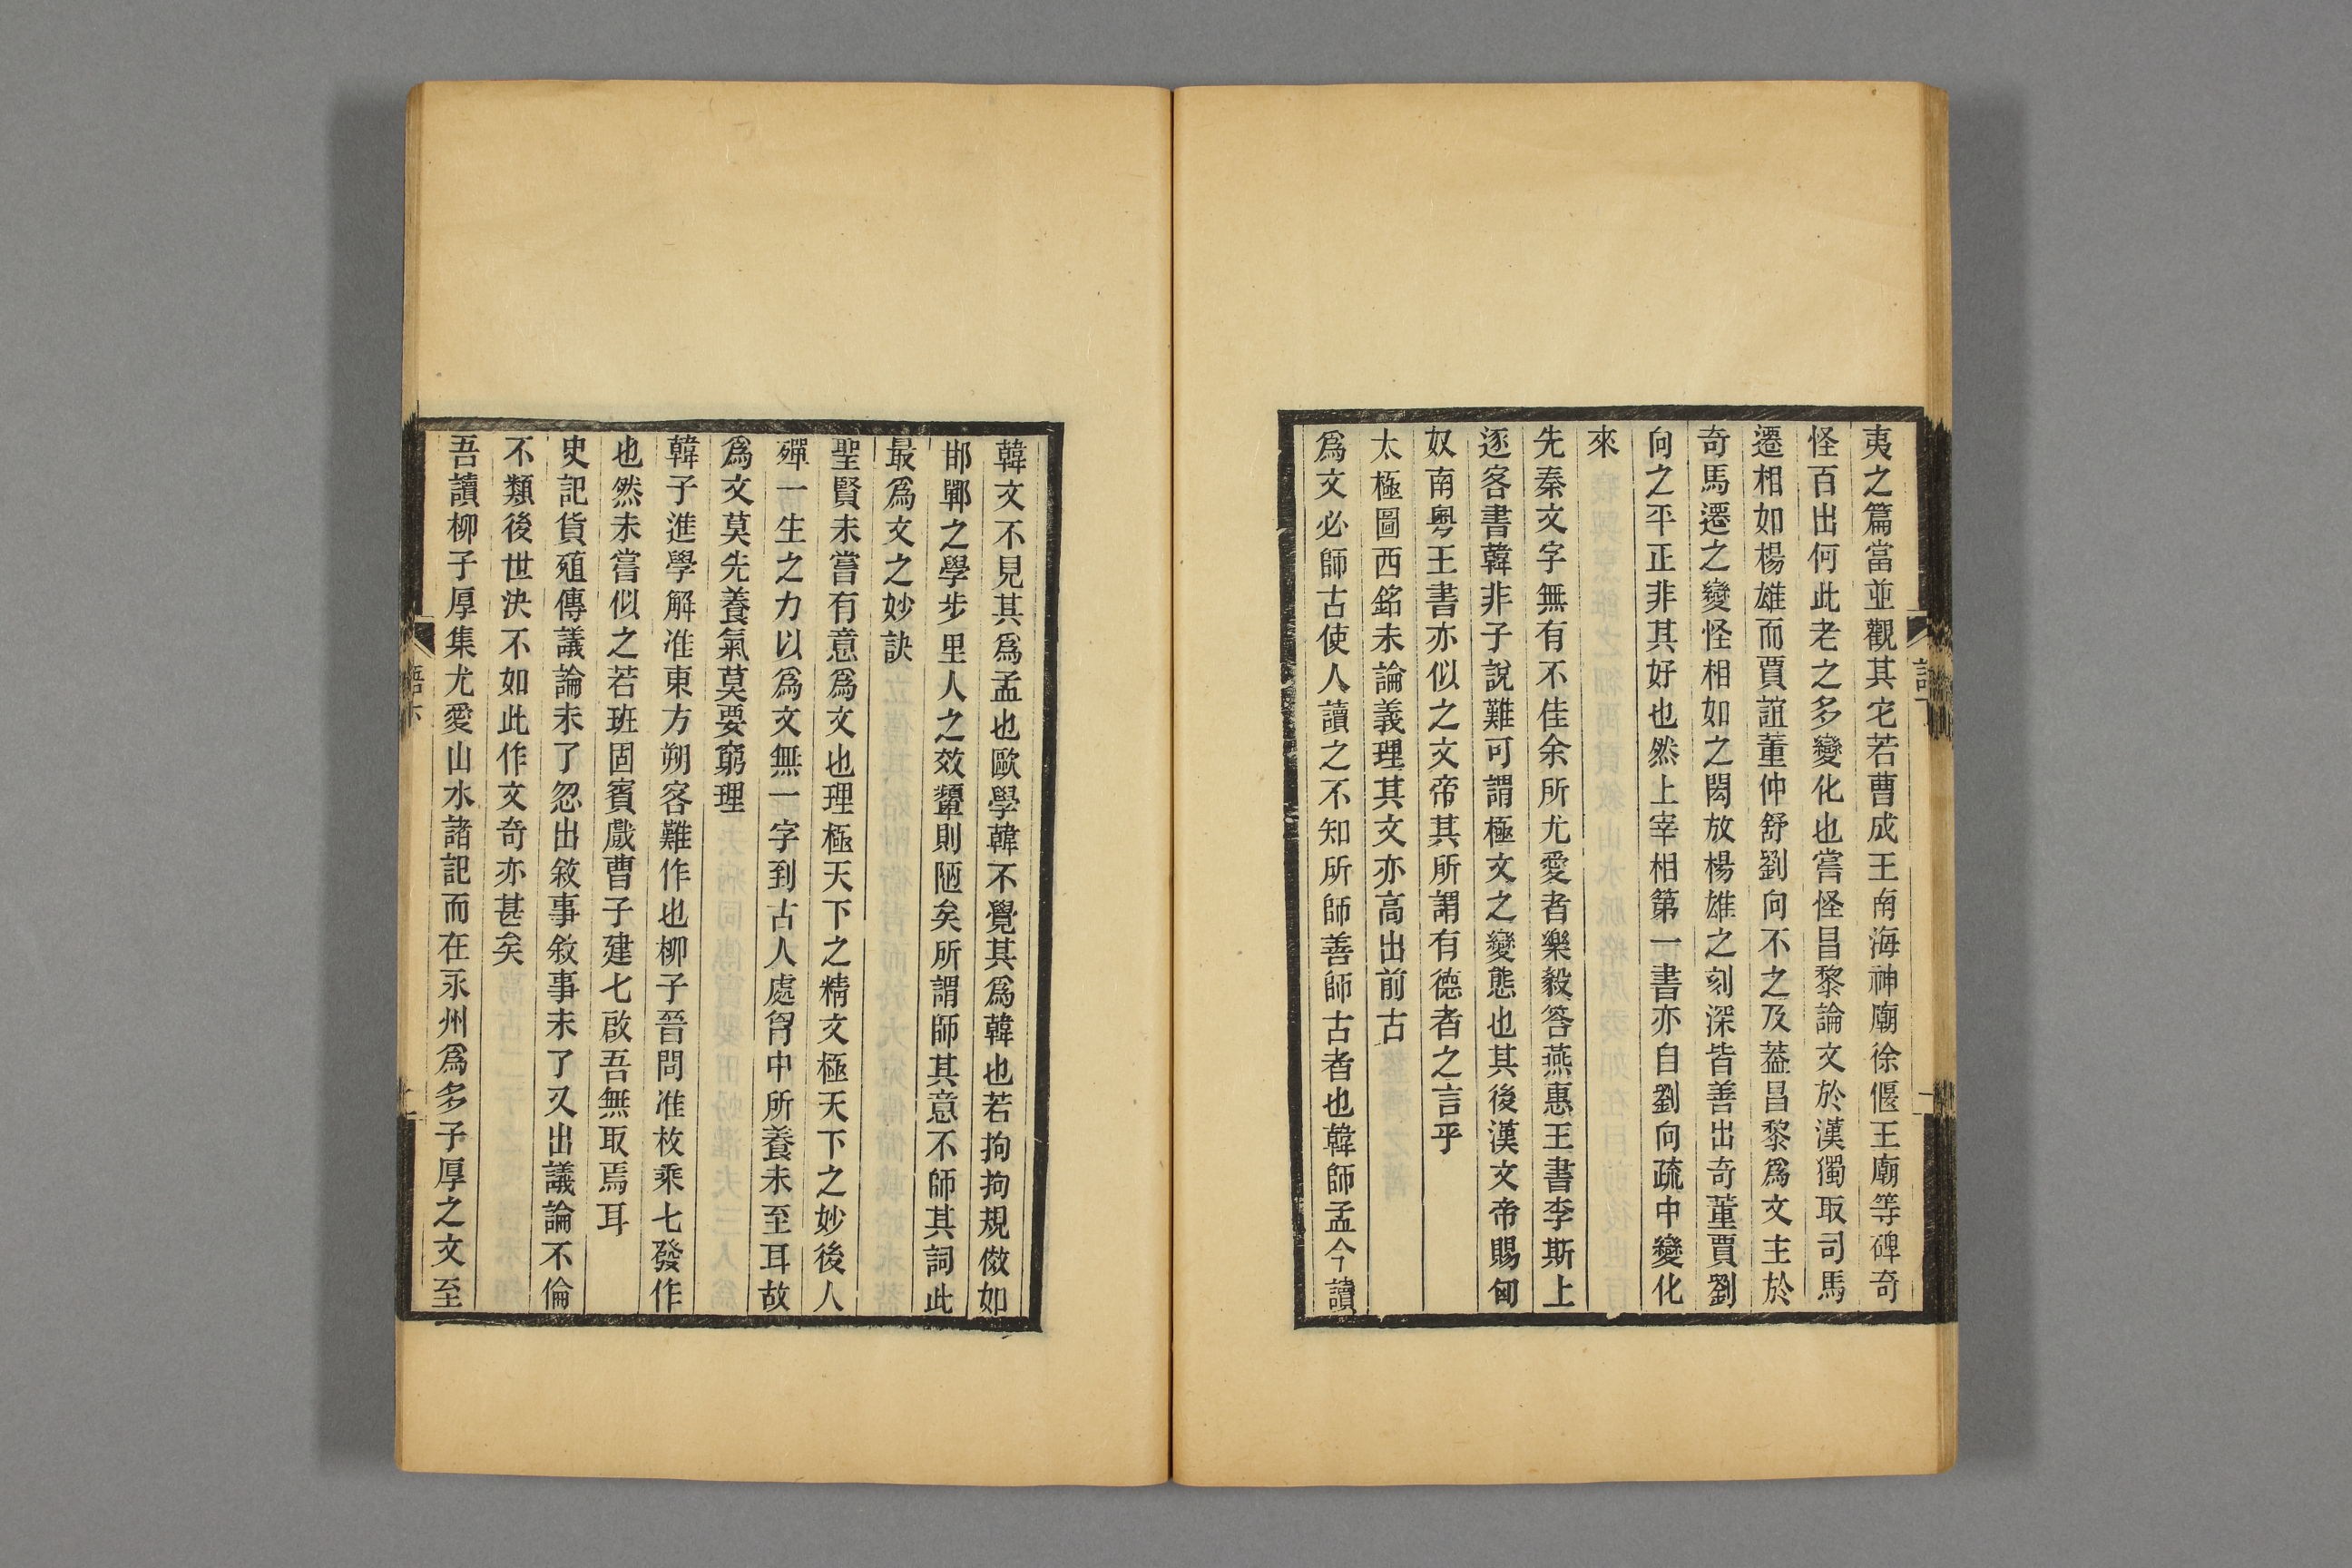 夷之篇當並觀其宅若曹成王南海神廟徐偃王廟等碑奇
怪百出何此老之多變化也嘗怪昌黎論文於漢獨取司馬
遷相如楊雄而賈誼董仲舒劉向不之及葢昌黎爲文主於
奇馬遷之變怪相如之閎放楊雄之刻深皆善出奇董賈劉
向之平正非其好也然上宰相第一書亦自劉向疏中變化
來
先秦文字無有不佳余所尤愛者樂毅答燕惠王書李斯上
逐客書韓非子說難可謂極文之變態也其後漢文帝賜匈
奴南粵王書亦似之文帝其所謂有德者之言乎
太極圖西銘未論義理其文亦高出前古
爲文必師古使人讀之不知所師善師古者也韓師孟今讀
韓文不見其爲孟也歐學韓不覺其爲韓也若拘拘規倣如
邯鄲之學步里人之效顰則陋矣所謂師其意不師其詞此
最爲文之妙訣
聖賢未嘗有意爲文也理極天下之精文極天下之妙後人
殫一生之力以爲文無一字到古人處胷中所養未至耳故
爲文莫先養氣莫要窮理
韓子進學解准東方朔客難作也柳子晉問准枚乘七發作
也然未嘗似之若班固賓戲曹子建七啟吾無取焉耳
史記貨殖傳議論未了忽出敘事敘事未了又出議論不倫
不類後世決不如此作文奇亦甚矣
吾讀柳子厚集尤愛山水諸記而在永州爲多子厚之文至